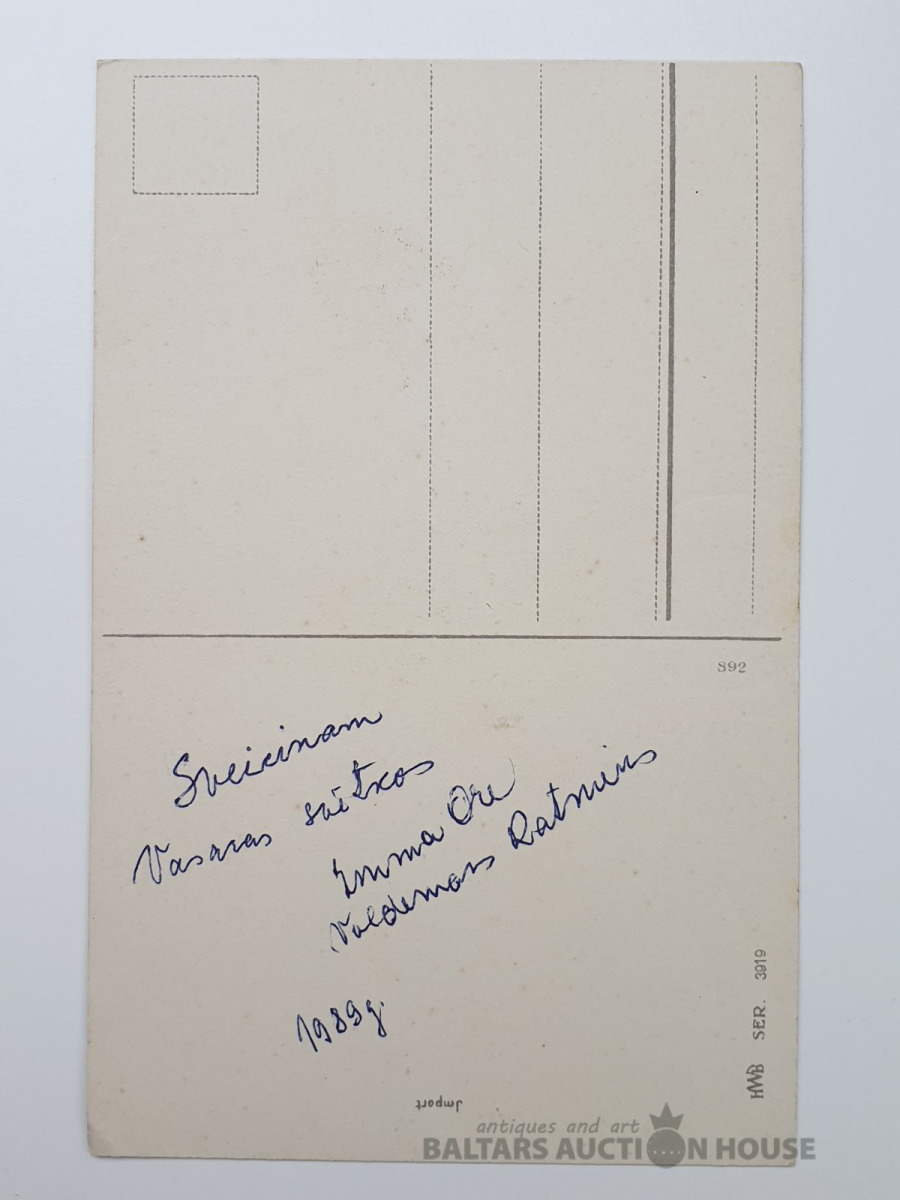 892
Sveicinam
Vasaras svētkos
Emma Ore
Valdemars Ratnieks
1989g.
HWB SER. 3919
Import
antiques and art
BALTARS AUCTION HOUSE